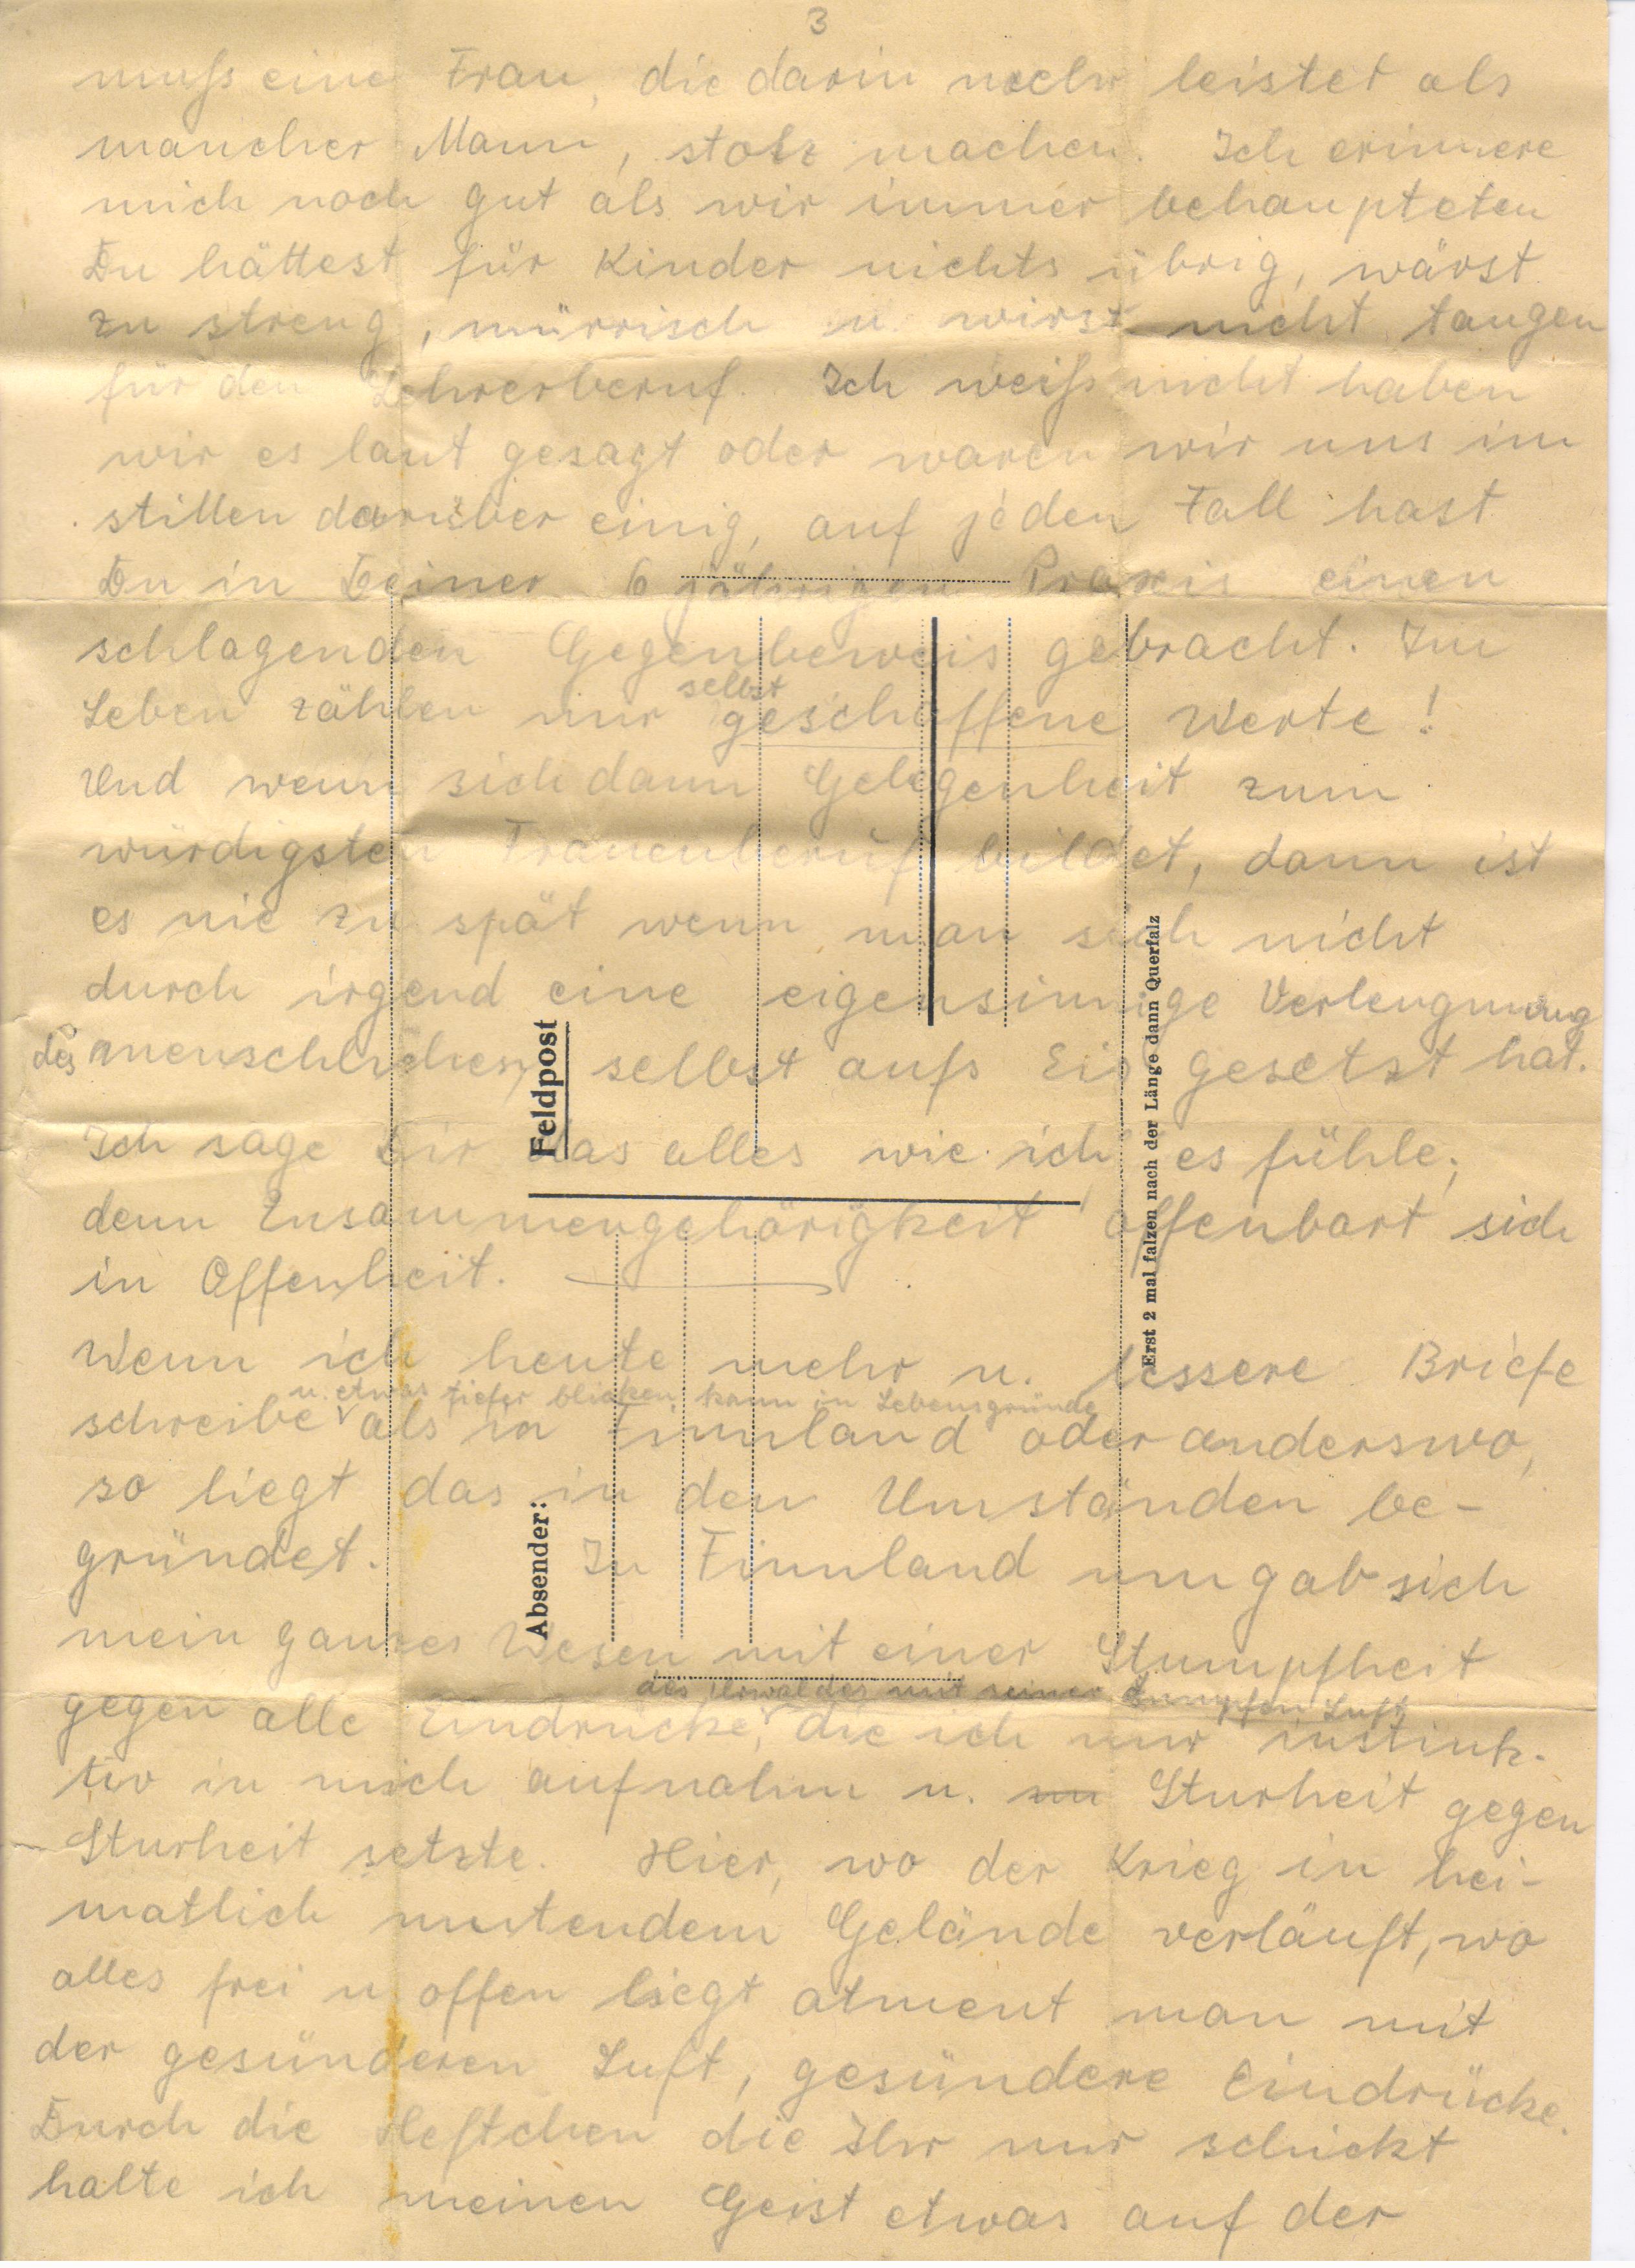 3
muss eine Frau, die darin mehr leistet als
mancher Mann, stolz machen. Ich erinnere
mich noch gut als wir immer behaupteten
Du hättest für Kinder nichts übrig, wärst
zu streng, mürrisch u. wirst nicht taugen
für den Lehrerberuf. Ich weiss nicht haben
wir es laut gesagt oder waren wir uns im
stillen darüber einig, auf jeden Fall hast
Du in Deiner 6 jährigen Praxis einen
schlagenden Gegenbeweis gebracht. Im
selbst
Leben zählen nur geschaffene Werte!
Und wenn sich dann Gelegenheit zum
würdigsten Frauenberuf bildet, dann ist
es nie zu spät wenn man sich nicht
durch irgend eine eigensinnige Verleugnung
des menschlichen selbst aufs Eis gesetzt hat.
Ich sage Dir das alles wie ich es fühle,
denn Zusammengehörigkeit offenbart sich
in Offenheit.
Wenn ich heute mehr u. bessere Briefe
u. etwas tiefer blicken kann in Lebensgründe
schreibe als in Finnland oder anderswo,
so liegt das in den Umständen be-
gründet. In Finnland umgab sich
mein ganzes Wesen mit einer Stumpfheit
des Urwaldes mit seiner dumpfen Luft
gegen alle Eindrücke, die ich nur instink-
tiv in mich aufnahm u. Sturheit gegen
Sturheit setzte. Hier, wo der Krieg in hei-
matlich mutendem Gelände verläuft, wo
alles frei u offen liegt atment man mit
der gesünderen Luft, gesündere Eindrücke.
Durch die Heftchen die Ihr mir schickt
halte ich meinen Geist etwas auf der
Feldpost
Absender:
Erst 2 mal falzen nach der Länge dann Querfalz